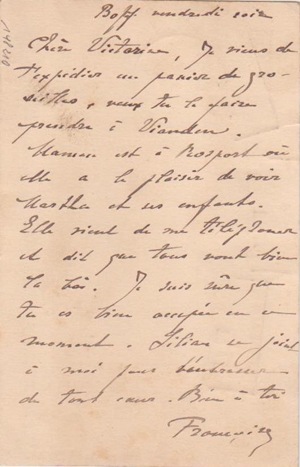 Boff vendredi soir
Chère Victorine, Je viens de
t'expédier un panier de gro-
seilles, veux tu le faire
prendre à Vianden.
Maman est à Rosport où
elle a le plaisir de voir
Martha et ses enfants.
Elle vient de me télégraphier
et dit que tous vont bien
là bas. Je suis sûre que
tu es bien occupée en ce
moment. Liliane se joint
à moi pour t'embrasser
de tout cœur. Bien à toi
Françoise